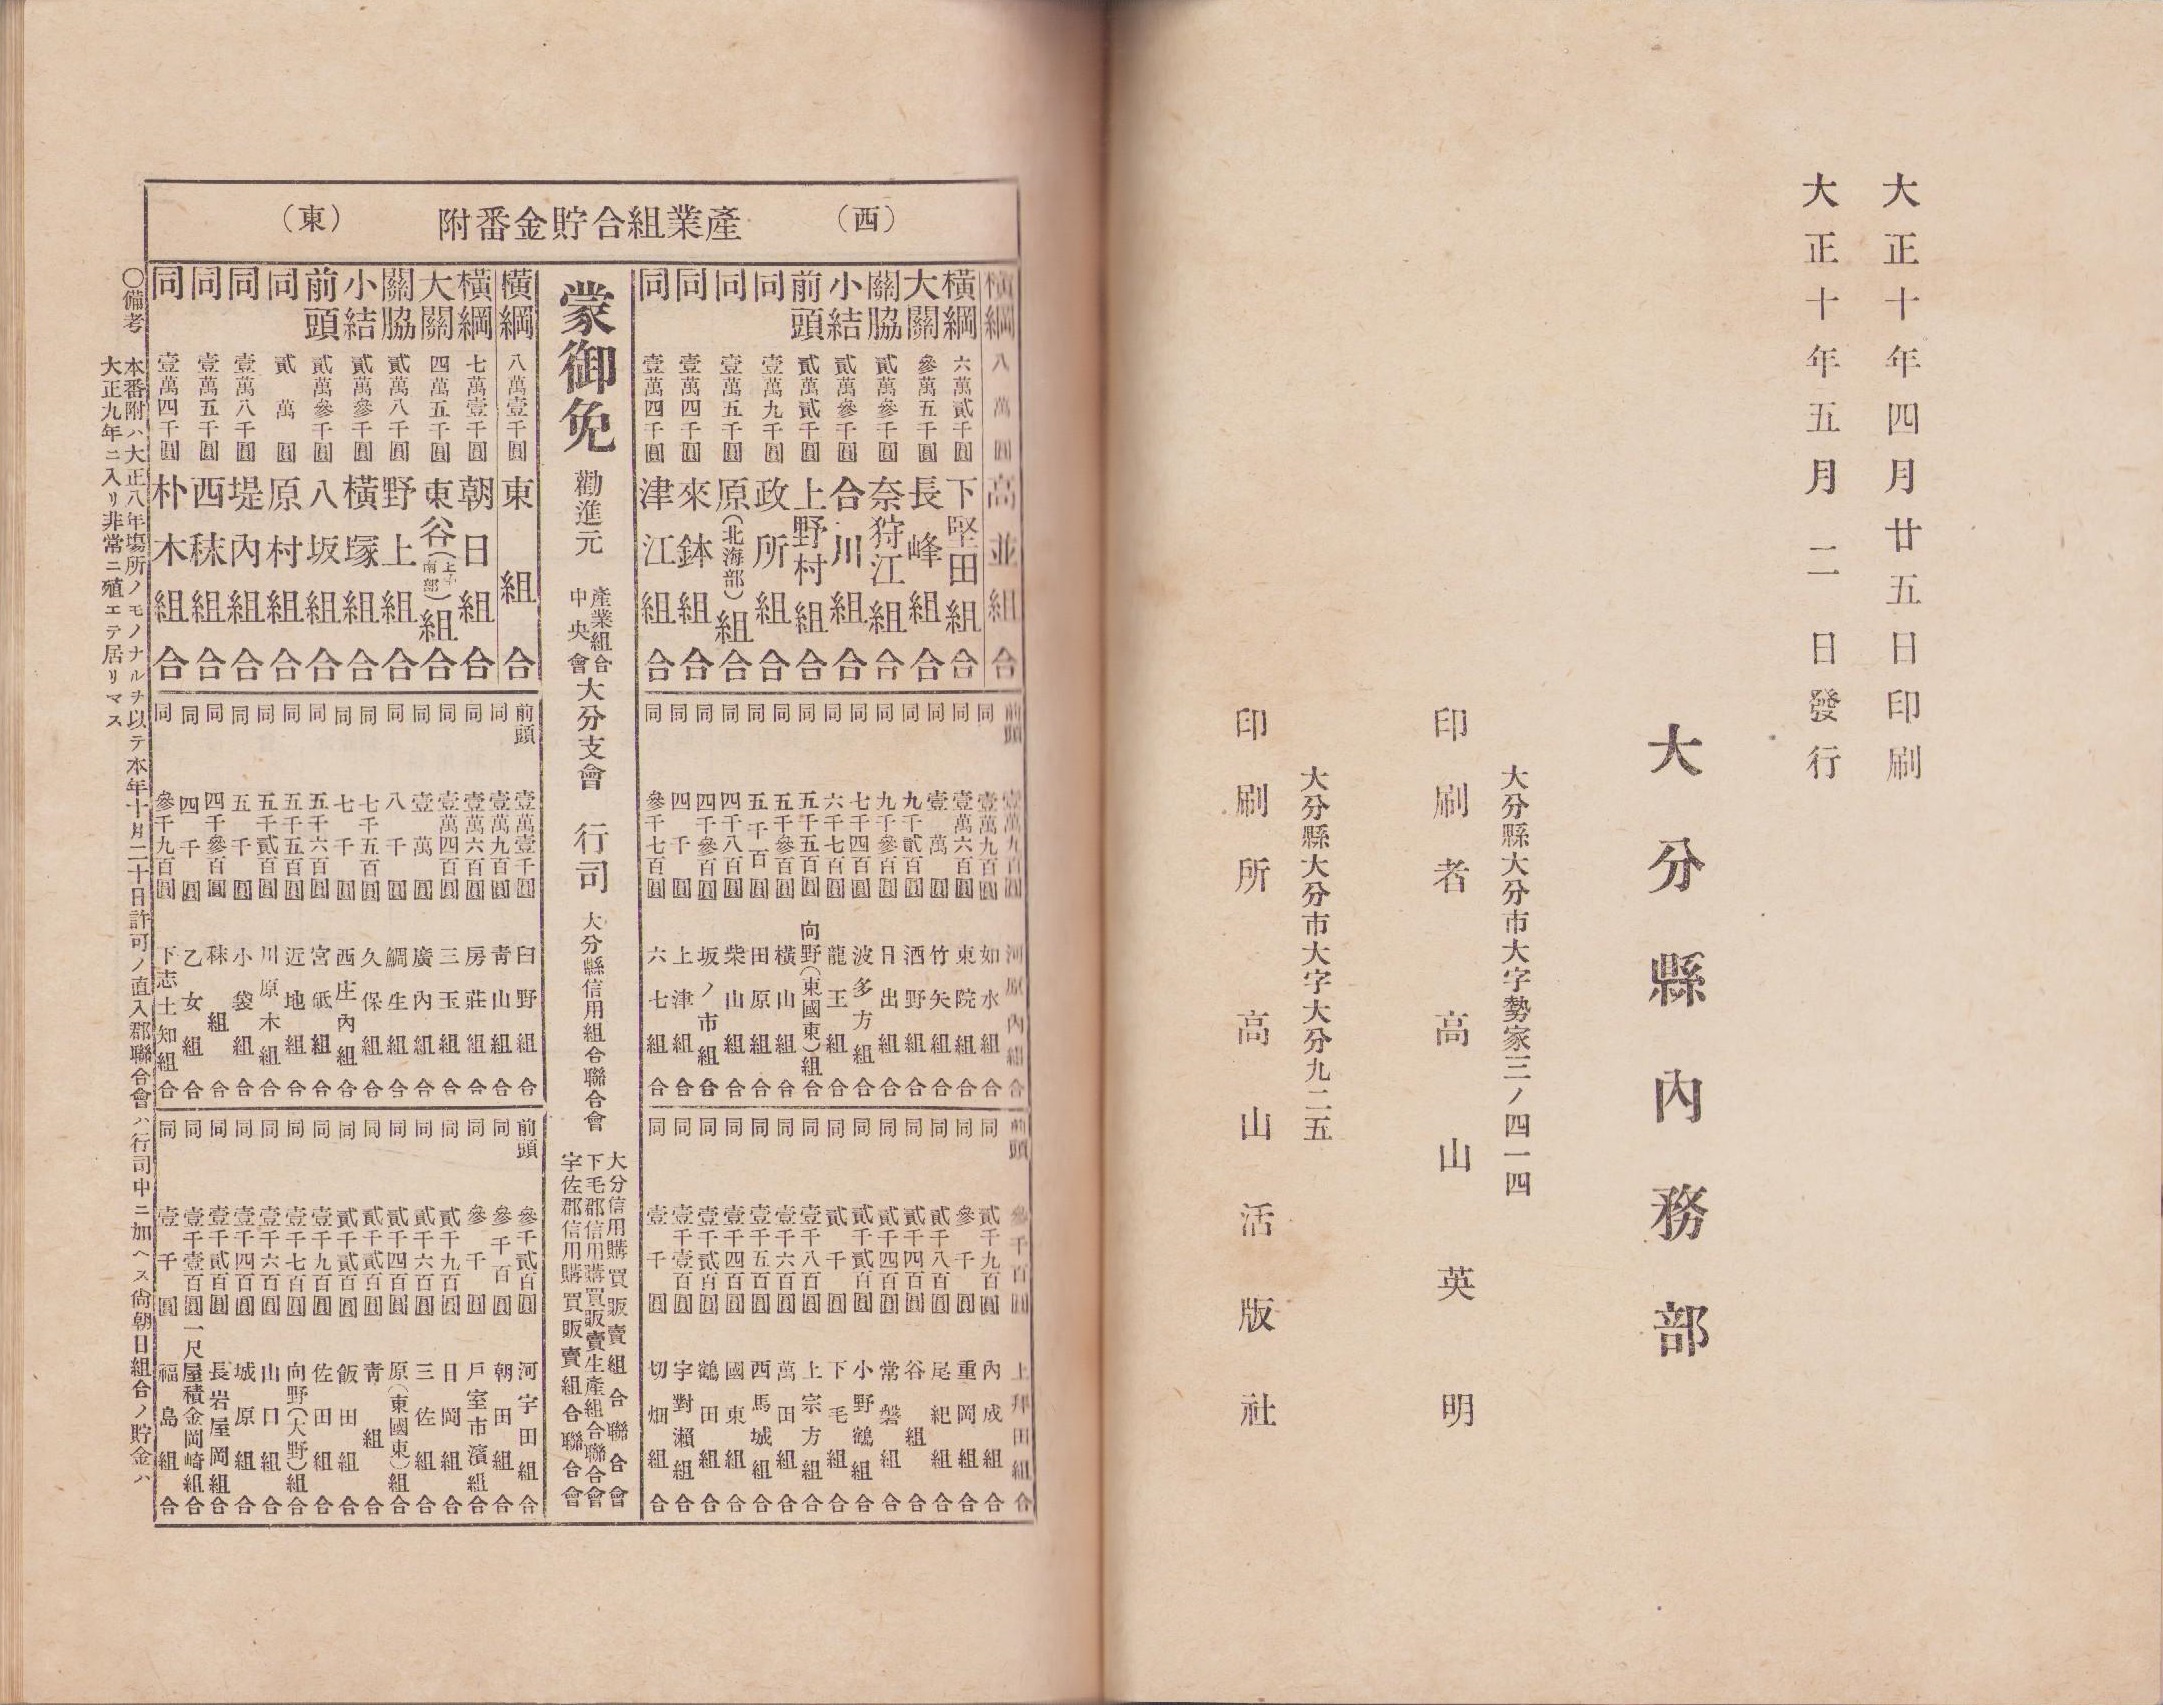 大正十年四月廿五日印刷
大正十年五月二日發行
大分縣內務部
大分縣大分市大字勢家三ノ四一四
印刷者 高山英明
大分縣大分市大字大分九二五
印刷所 高山活版社
產業組合貯金番附
（西）
（東）
橫綱 八萬圓 高並組合
橫綱 六萬貳千圓 下堅田組合
大關 參萬五千圓 長峰組合
關脇 貳萬參千圓 奈狩江組合
小結 貳萬參千圓 合川組合
前頭 貳萬貳千圓 上野村組合
同 壹萬九千圓 政所組合
同 壹萬五千圓 原（北海部）組合
同 壹萬四千圓 來鉢組合
同 壹萬四千圓 津江組合
前頭 壹萬九百圓 河原內組合
同 壹萬九百圓 如水組合
同 壹萬六百圓 東院組合
同 壹萬圓 竹矢組合
同 九千貳百圓 酒野組合
同 九千參百圓 日出組合
同 七千四百圓 波多方組合
同 六千七百圓 龍王組合
同 五千五百圓 向野（東國東）組合
同 五千參百圓 橫山組合
同 五千百圓 田原組合
同 四千八百圓 柴山組合
同 四千參百圓 坂ノ市組合
同 四千圓 上津組合
同 參千七百圓 六七組合
前頭 參千百圓 上拜田組合
同 貳千九百圓 內成組合
同 參千圓 重岡組合
同 貳千八百圓 尾紀組合
同 貳千四百圓 谷組合
同 貳千四百圓 常磐組合
同 貳千貳百圓 小野鶴組合
同 貳千圓 下毛組合
同 壹千八百圓 上宗方組合
同 壹千六百圓 萬田組合
同 壹千五百圓 西馬城組合
同 壹千四百圓 國東組合
同 壹千貳百圓 鶴田組合
同 壹千壹百圓 宇對瀨組合
同 壹千圓 切畑組合
蒙御免
勸進元 產業組合中央會大分支會
行司 大分縣信用組合聯合會
大分信用購買販賣組合聯合會
下毛郡信用購買販賣生產組合聯合會
宇佐郡信用購買販賣組合聯合會
橫綱 八萬壹千圓 東組合
橫綱 七萬壹千圓 朝日組合
大關 四萬五千圓 東谷（南部）組合
關脇 貳萬八千圓 野上組合
小結 貳萬參千圓 橫塚組合
前頭 貳萬參千圓 八坂組合
同 貳萬圓 原村組合
同 壹萬八千圓 堤內組合
同 壹萬五千圓 西秣組合
同 壹萬四千圓 朴木組合
前頭 壹萬壹千圓 臼野組合
同 壹萬九百圓 靑山組合
同 壹萬六百圓 房莊組合
同 壹萬四百圓 三玉組合
同 壹萬圓 廣內組合
同 八千圓 鯛生組合
同 七千五百圓 久保組合
同 七千圓 西庄內組合
同 五千六百圓 宮砥組合
同 五千五百圓 近地組合
同 五千貳百圓 川原木組合
同 五千圓 小袋組合
同 四千參百圓 秣組合
同 四千圓 乙女組合
同 參千九百圓 下志土知組合
前頭 參千貳百圓 河宇田組合
同 參千百圓 朝田組合
同 參千圓 戶室市濱組合
同 貳千九百圓 日岡組合
同 貳千六百圓 三佐組合
同 貳千四百圓 原（東國東）組合
同 貳千貳百圓 靑組合
同 貳千貳百圓 飯田組合
同 壹千九百圓 佐田組合
同 壹千七百圓 向野（大野）組合
同 壹千六百圓 山口組合
同 壹千四百圓 城原組合
同 壹千貳百圓 長岩屋岡組合
同 壹千壹百圓 一尺屋積金岡崎組合
同 壹千圓 福島組合
〇備考 本番附ハ大正八年塲所ノモノナルヲ以テ本年十月二十日許可ノ直入郡聯合會ハ行司中ニ加ヘス尙朝日組合ノ貯金ハ
大正九年ニ入リ非常ニ殖エテ居リマス